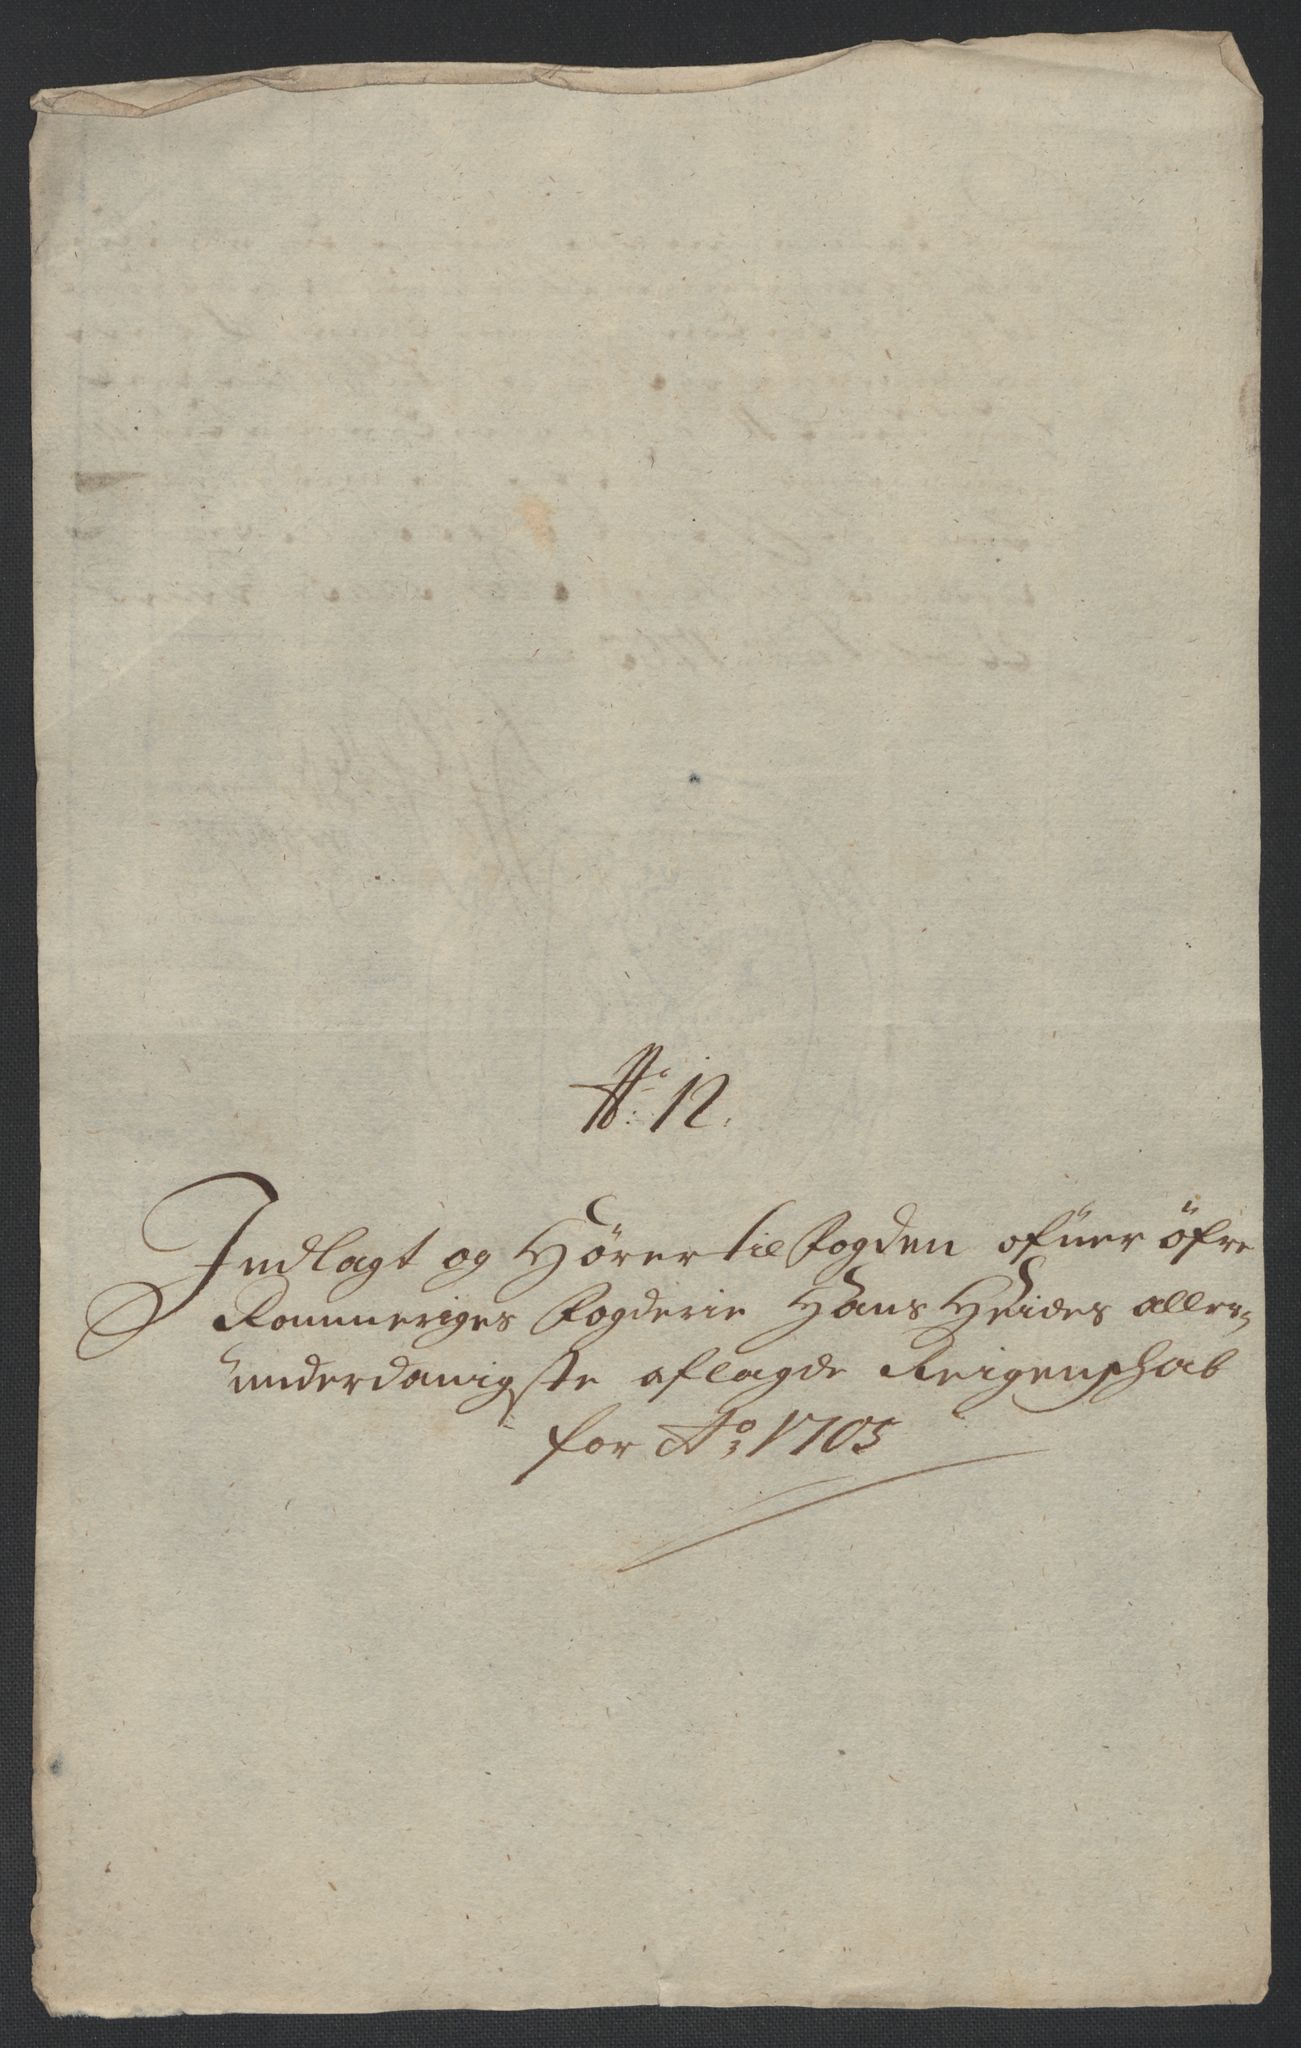 No: 12.
Indlagt og Hörer til Fogden ofuer öfre
Rommeriges Fogderie Hans Heides aller-
underdanigste aflagde Reigenschab
for Ao: 1705